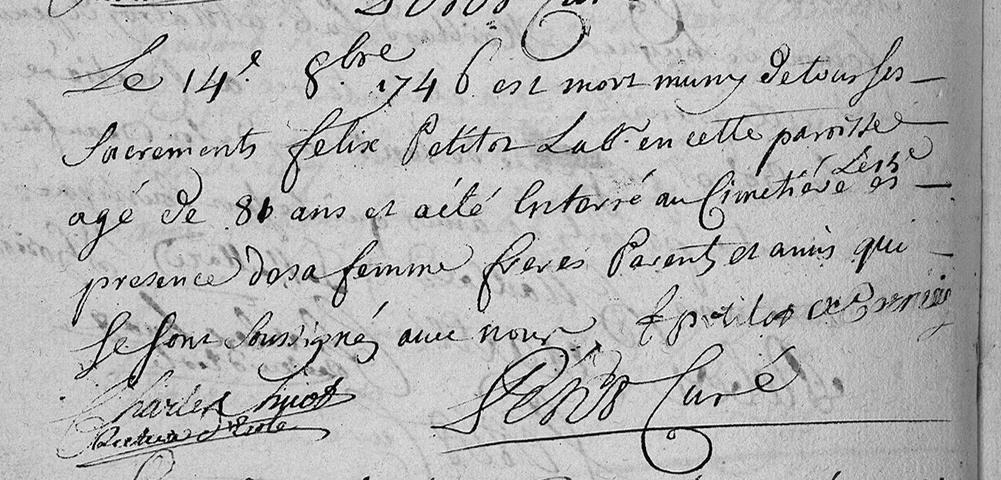 Le 14.e 8bre 1746 est mort muny de tous ses
Sacrements felix Petitot Labr. en cette paroisse
agé de 80 ans et a été Enterré au Cimetiére Le 15e es
presence de sa femme freres Parents et amis qui
se sont soussignéz avec nous f petitot
Charles
Recteur d'Ecole Curé